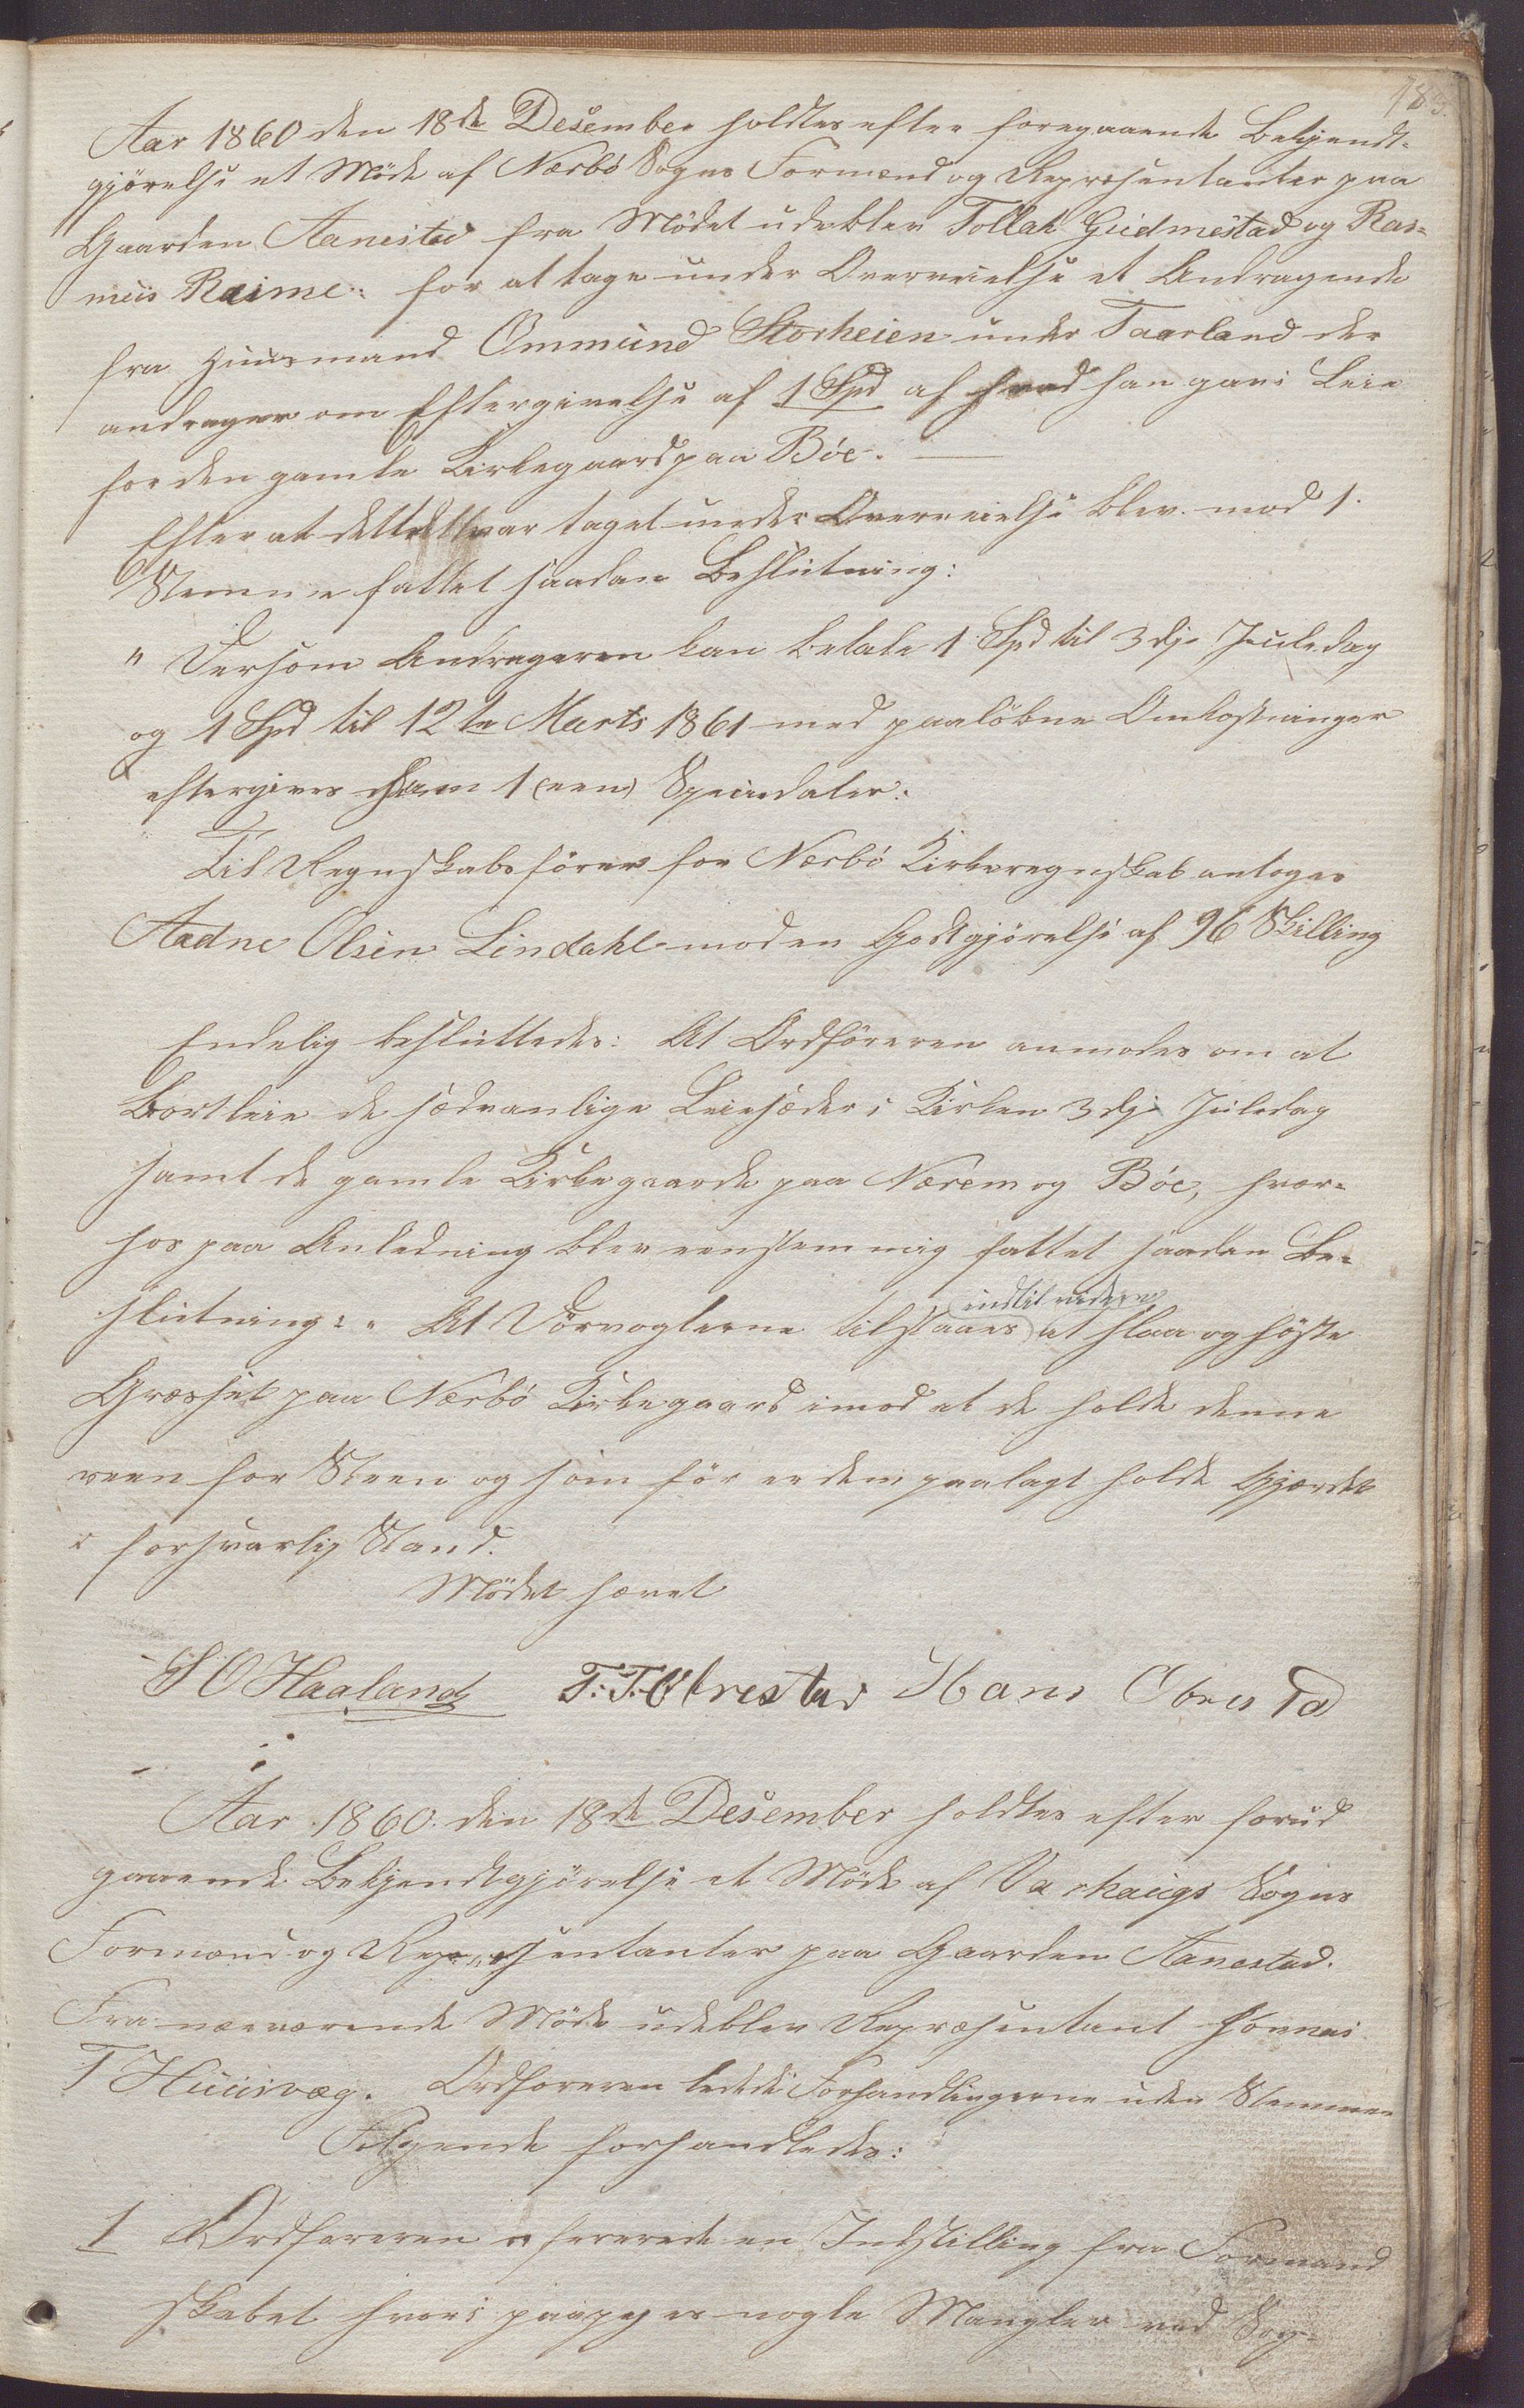 183.
Aar 1860 den 18de Desember holdtes efter foregaaende Bekjendt-
gjörelse et Möde af Nærbö Sogns Formænd og Repræsentanter paa
Gaarden Aanestad fra Mödet udeblev Tollak Gudmestad og Ras-
mus Raime: for at tage under Overveielse et Andragende
fra Huusmand Ommund Storheien under Taarland der
andrager om Eftergivelse af 1 Spd af hvad han gav i Leie
for den gamle Kirkegaard paa Böe.
Efter at dette var taget under Overveielse blev mod 1
Stemme fattet saadan Beslutning:
" Dersom Andrageren kan betale 1 Spd til 3dje Juuledag
og 1 Spd til 12te Marts 1861 med paalöbne Omkostninger
eftergives ham 1 (een) Speciedaler:
Til Regnskabsförer for Nærbö Kirkeregnskab antoges
Aadne Olsen Lindahl mod en Godtgjörelse af 96 Skilling
Endelig besluttedes: At Ordföreren anmodes om at
Bortleie de sædvanlige Leiesæder i Kirken 3dje Juledag
samt de gamle Kirkegaarde paa Nærem og Böe, hvor-
hos paa Anledning blev eenstemmig fattet saadan Be-
slutning: " At Dörvogterne tilstaaes indtil videre at slaa og höste
Græsset paa Nærbö Kirkegaard imod at de holde denne
reen for Steen og som för er dem paalagt holde Gjærdet
i forsvarlig Stand.
Mödet hævet
S O Haaland T. T. Obrestad Hans Obrestad
Aar 1860 den 18de Desember holdtes efter forud
gaaende Bekjendtgjörelse et Möde af Varhaugs Sogns
Formænd og Repræsentanter paa Gaarden Aanestad.
Fra nærværende Möde udeblev Repræsentant Jonnas
T Huusvæg. Ordföreren ledede Forhandlingerne uden Stemme
Fölgende forhandledes:
1 Ordföreren refererede en Indstilling fra Formand
skabet hvori paapeges nogle Mangler ved Sog-